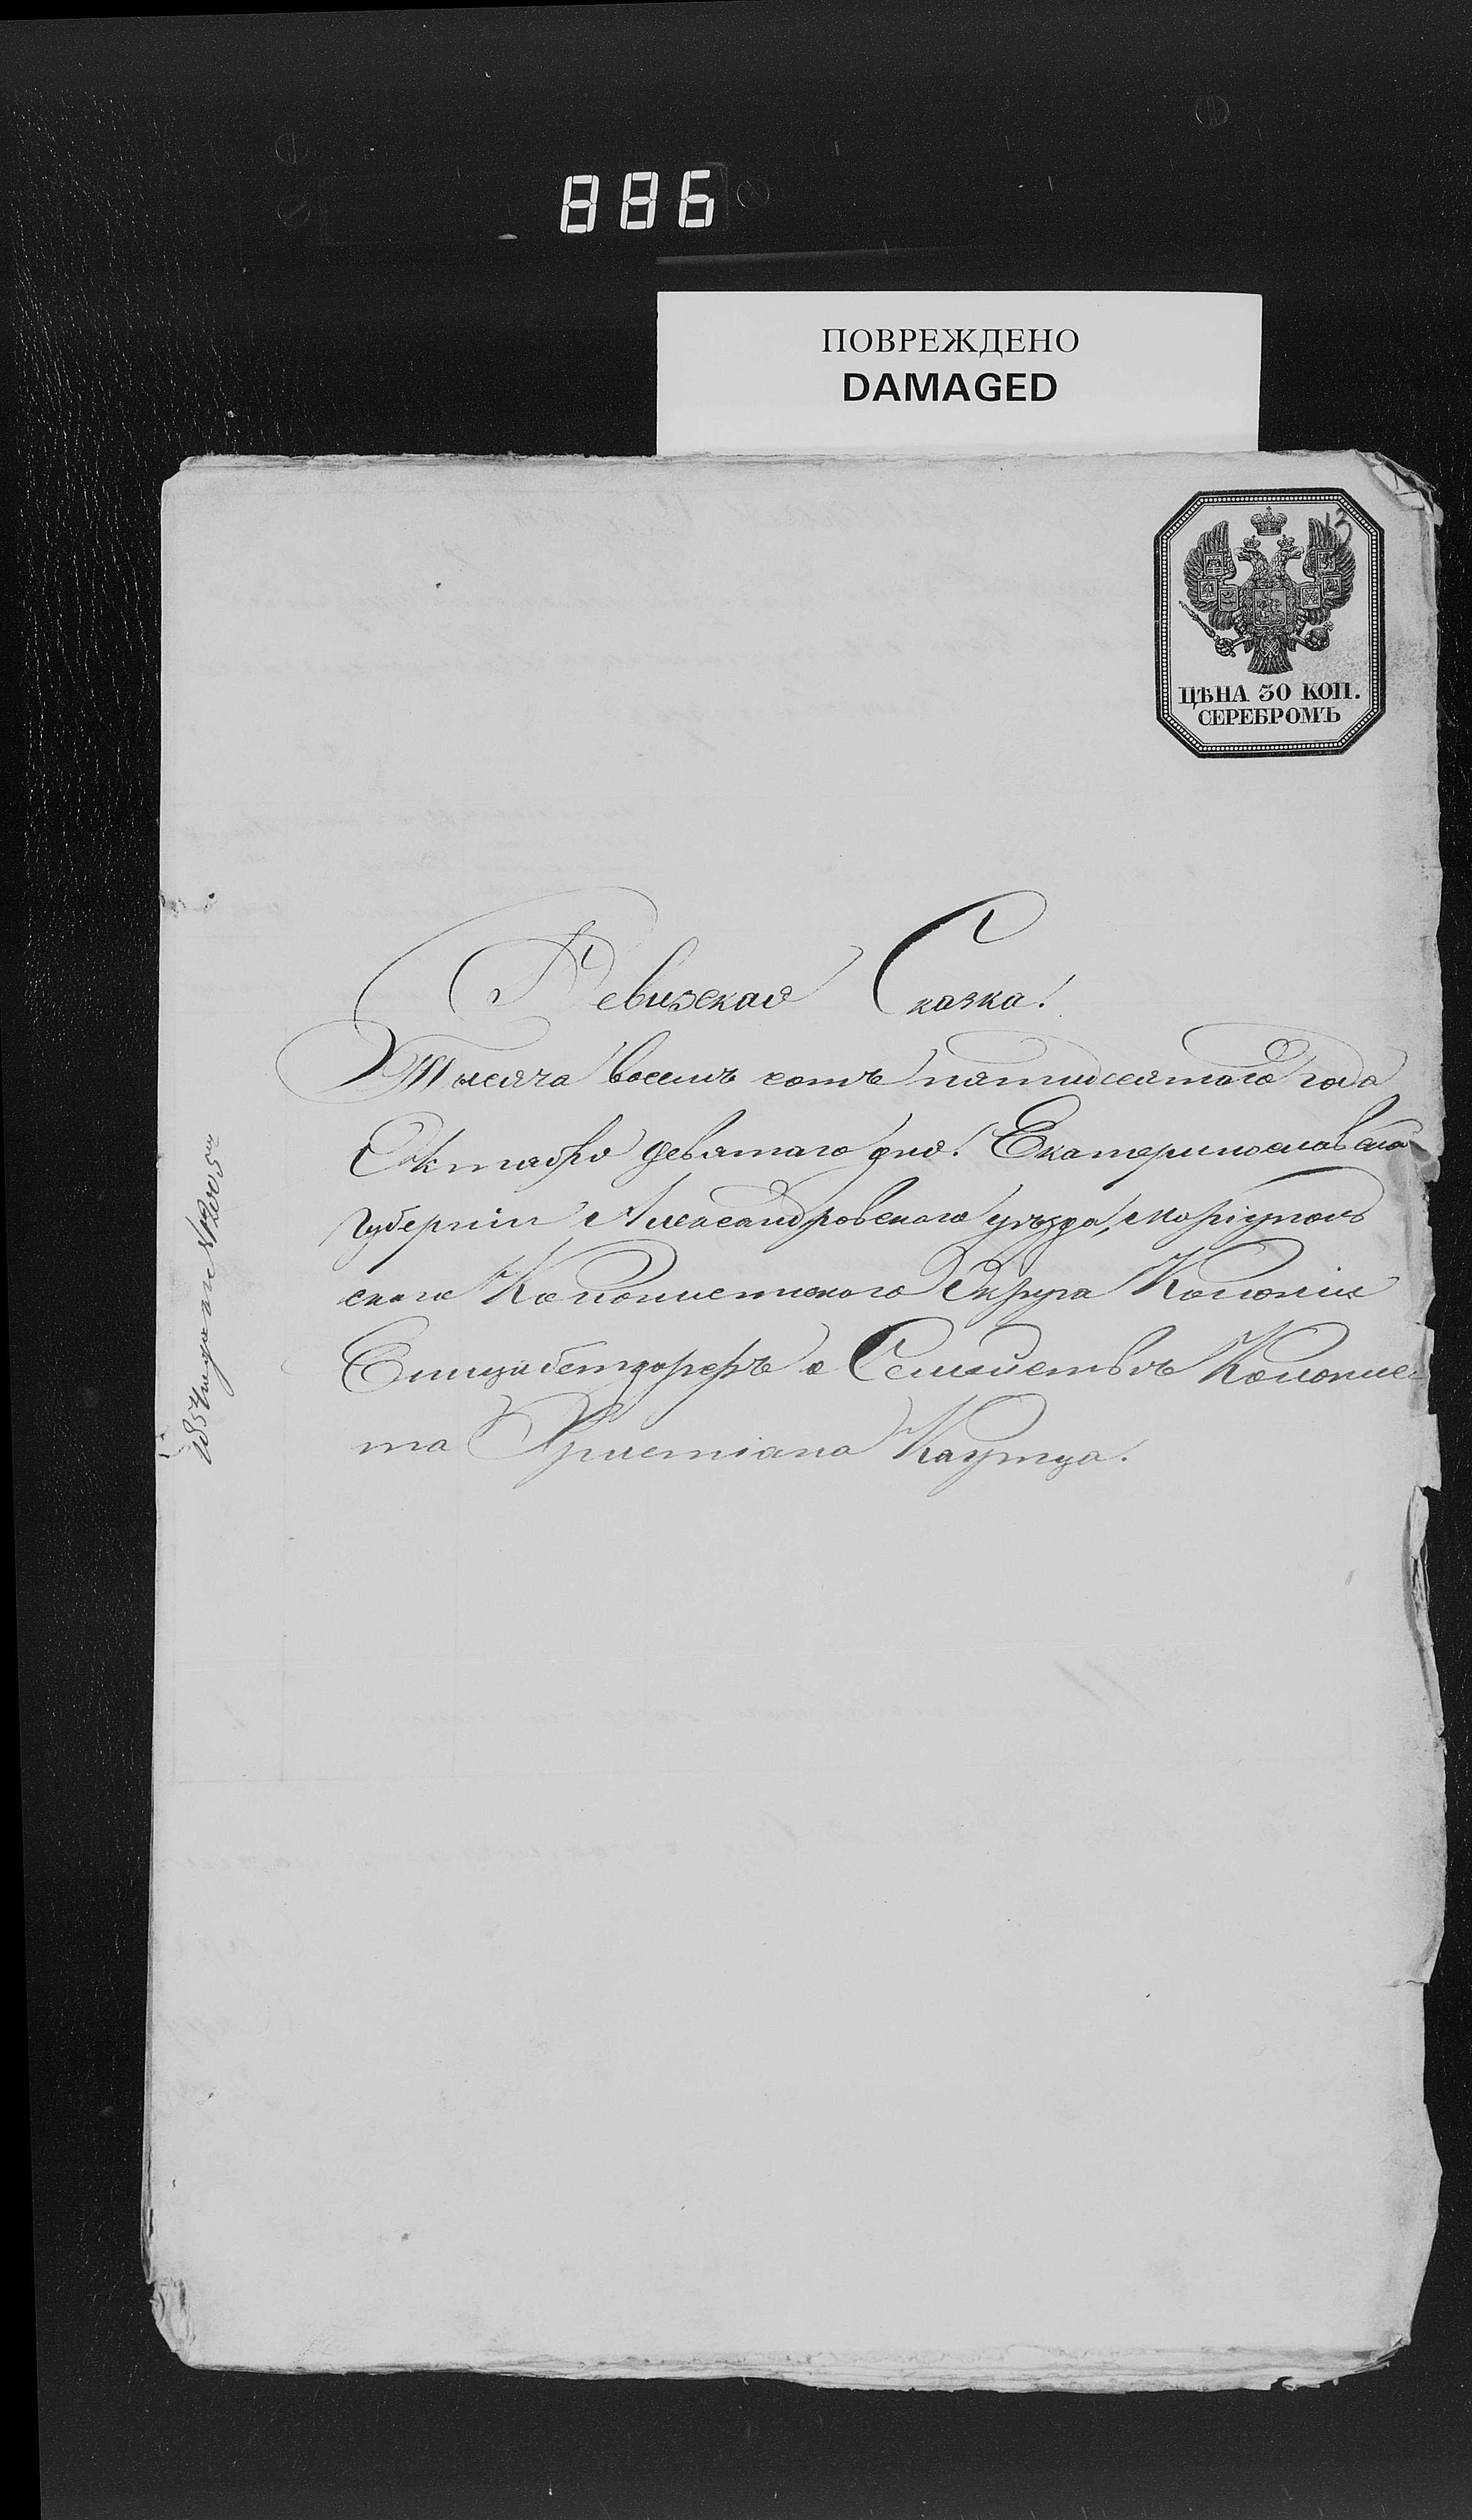 886
ПОВРЕЖДЕНО
DAMAGED
13
ЦѢНА 30 КОП.
СЕРЕБРОМЪ
Ревизская Сказка!
Тысяча восемь сотъ пятидесятого года
Октября девятаго дня! Екатеринославской
Губерніи Александровскаго уѣзда, Маріуполь
скаго Колонистскаго Округа Колоніи
Елизабетдорфъ о Семействѣ Колонис
та Христіана Каутца.